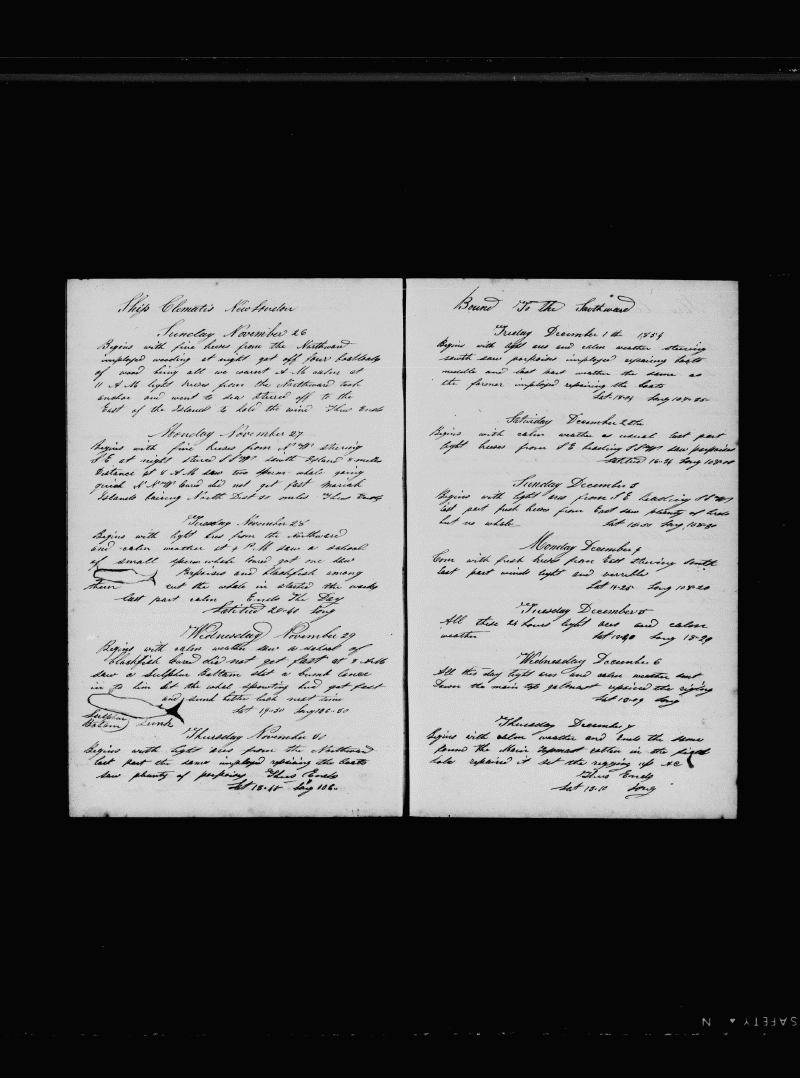 Ship Clematis New London
Sunday November 26
Begins with fine breses from the Northward
imployed wooding at night got off four boatloads
of wood being all we warent A M calm at
11 A M light breses from the Northward took
anchor and went to sea stered off to the
East of the Islands to hold the wind Thus Ends
Monday November 27
Begins with fine breses from stering
S E at night stered S S W South Island 8 miles
Distance at 8 A M saw two whale going
quick N N W lowed did not get fast Mariah
Islands baring North Dist 50 miles Thus Ends
Tuesday November 28
Begins with light ares from the Northward
and calm weather at 4 P M saw a school
of small sperm whale lowed got one saw
Porpoises and blackfish among
them cut the whale in started the works
last part calm Ends The Day
Latitud 20-40 Long
Wednesday November 29
Begins with calm weather saw a school of
blackfish lowed did not get fast at
saw a Sulphur Bottom shot a bomb lance
in to him hit the whal spouting blud got fast
and sunk better luck next time
Lat 19-50 Long
Sulphur
Botom Sunk
Thursday November 30
Begins with light ares from the Northward
last part the same imployed repairing the boats
saw plenty of porpoises Thus Ends
Lat 18-45 Long 106-
Bound To the Southward
Friday December 1th 1854
Begins with light ares and calm weather stering
south saw porpoises imployed repairing boats
muddle and last part weather the same as
the former imployed repairing the boats
Lat Long
Saturday December 2th
Begins with calm weather as usual last part
light breses from S E heading S S W saw porpoises
Latitud 16-36 Long
Sunday December 3
Begins with light ares from S E heading S S W
last part fresh breses from East saw plenty of
but no whale Lat Long 108-30
Monday December 4
Com with fresh breses from East stering South
last part winds light and varible
Lat 14-25 Long 108-20
Tuesday December 5
All these 24 hours light ares and calm
weather Lat Long
Wednesday December 6
All this day light ares and calm weather sent
Down the main top galmast repaired the riging
Lat 13-09 Long
Thursday December 7
Begins with calm weather and Ends the same
found the Main topmast rotten in the
hole repaired it set the rigging up &C
Thus Ends
Lat 13-10 Long
SAFETY N